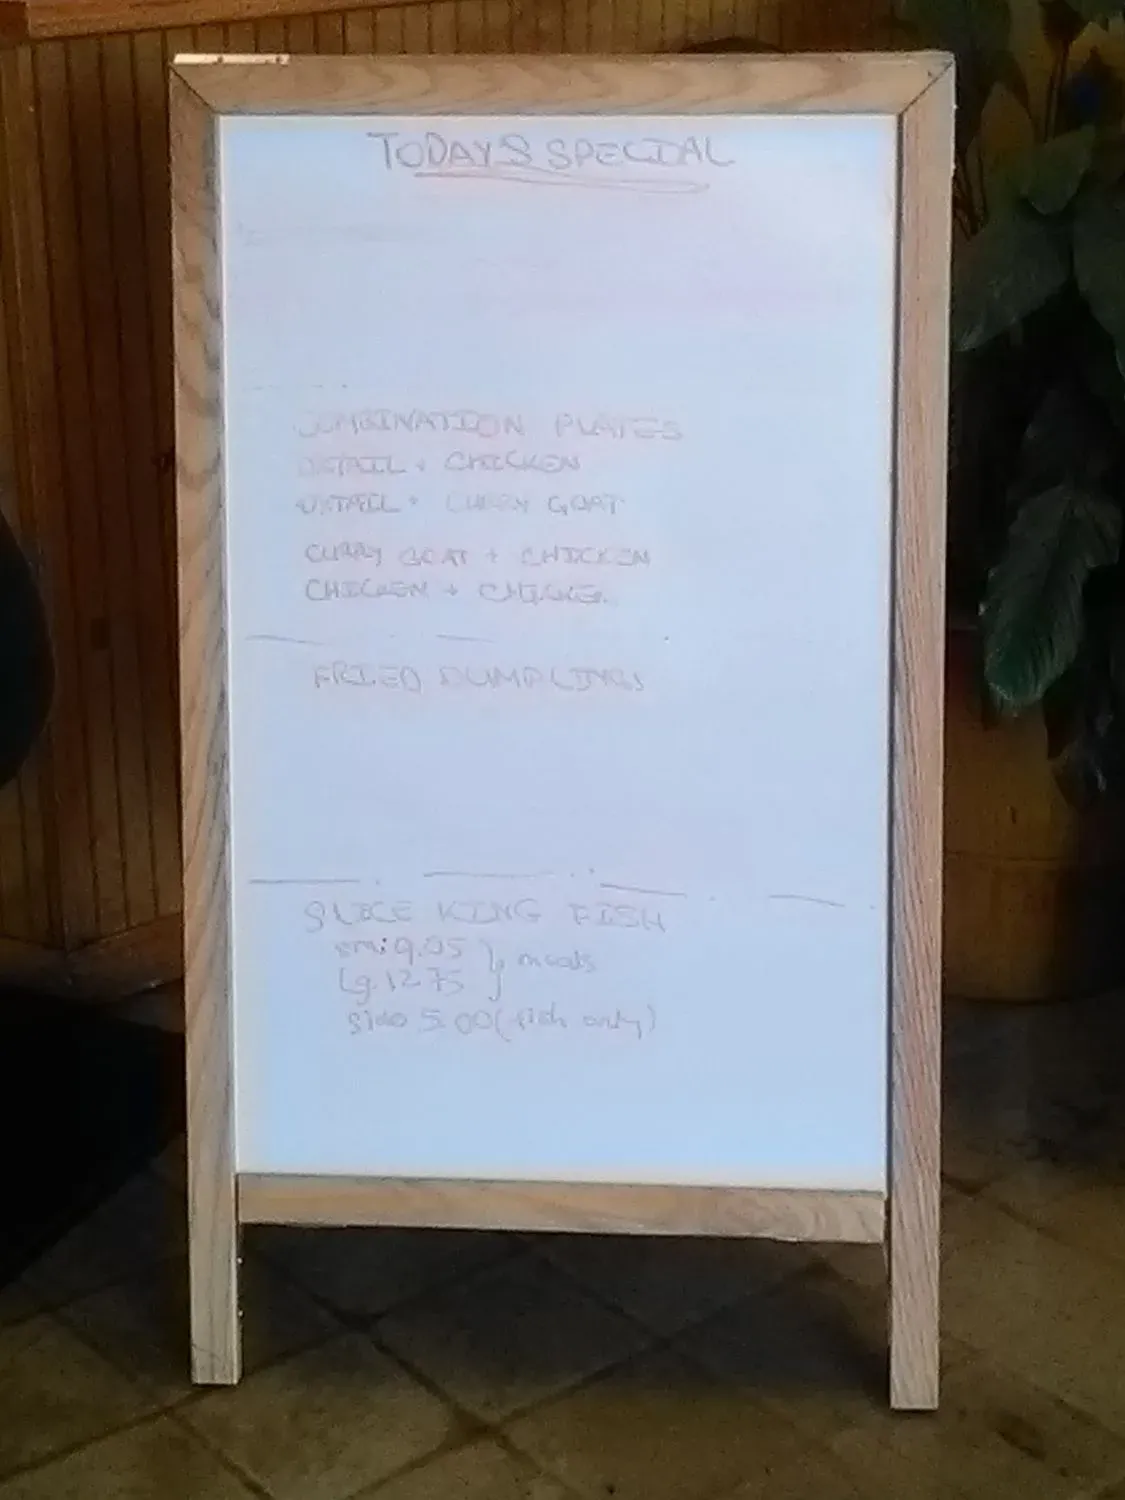 TODAYS SPECIAL
COMBINATION PLATES
OXTAIL + CHICKEN
OXTAIL + CURRY GOAT
CURRY GOAT + CHICKEN
CHICKEN + CHICKEN
FRIED DUMPLINGS
SLICE KING FISH
sm: 9.05 } meals
Lg. 12.75
side 5.00 (fish only)